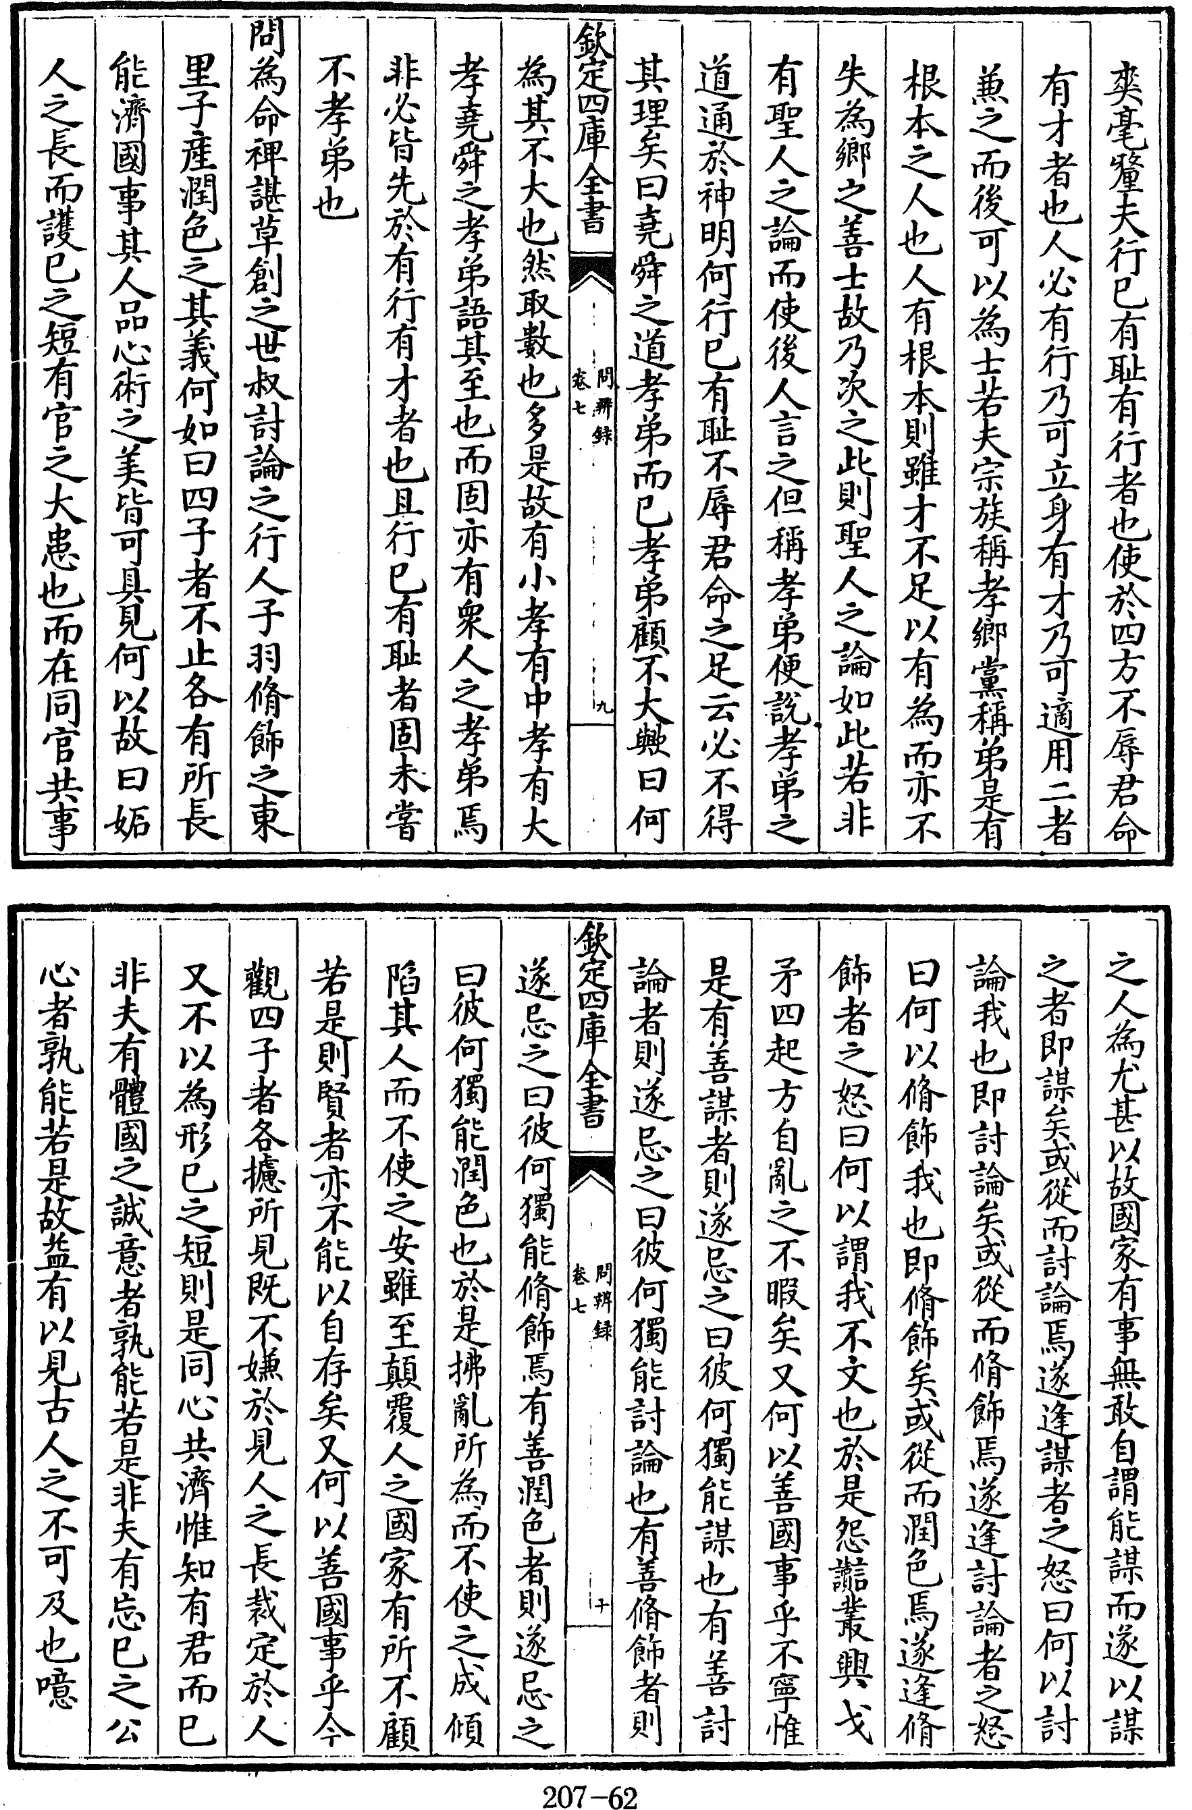 爽毫釐夫行已有恥有行者也使於四方不辱君命
有才者也人必有行乃可立身有才乃可適用二者
兼之而後可以為士若夫宗族稱孝鄉黨稱弟是有
根本之人也人有根本則雖才不足以有為而亦不
失為鄉之善士故乃次之此則聖人之論如此若非
有聖人之論而使後人言之但稱孝弟便說孝弟之
道通於神明何行已有恥不辱君命之足云必不得
其理矣曰堯舜之道孝弟而已孝弟顧不大歟曰何
欽定四庫全書
問辨録
卷七
九
為其不大也然取數也多是故有小孝有中孝有大
孝堯舜之孝弟語其至也而固亦有衆人之孝弟焉
非必皆先於有行有才者也且行已有恥者固未嘗
不孝弟也
問為命裨諶草創之世叔討論之行人子羽脩飾之東
里子產潤色之其義何如曰四子者不止各有所長
能濟國事其人品心術之美皆可具見何以故曰妬
人之長而護已之短有官之大患也而在同官共事
之人為尤甚以故國家有事無敢自謂能謀而遂以謀
之者即謀矣或從而討論焉遂逢謀者之怒曰何以討
論我也即討論矣或從而脩飾焉遂逢討論者之怒
曰何以脩飾我也即脩飾矣或從而潤色焉遂逢脩
飾者之怒曰何以謂我不文也於是怨讟叢興戈
矛四起方自亂之不暇矣又何以善國事乎不寧惟
是有善謀者則遂忌之曰彼何獨能謀也有善討
論者則遂忌之曰彼何獨能討論也有善脩飾者則
欽定四庫全書
問辨録
卷七
十
遂忌之曰彼何獨能脩飾焉有善潤色者則遂忌之
曰彼何獨能潤色也於是拂亂所為而不使之成傾
陷其人而不使之安雖至顛覆人之國家有所不顧
若是則賢者亦不能以自存矣又何以善國事乎今
觀四子者各攄所見既不嫌於見人之長裁定於人
又不以為形已之短則是同心共濟惟知有君而已
非夫有體國之誠意者孰能若是非夫有忘已之公
心者孰能若是故葢有以見古人之不可及也噫
207-62